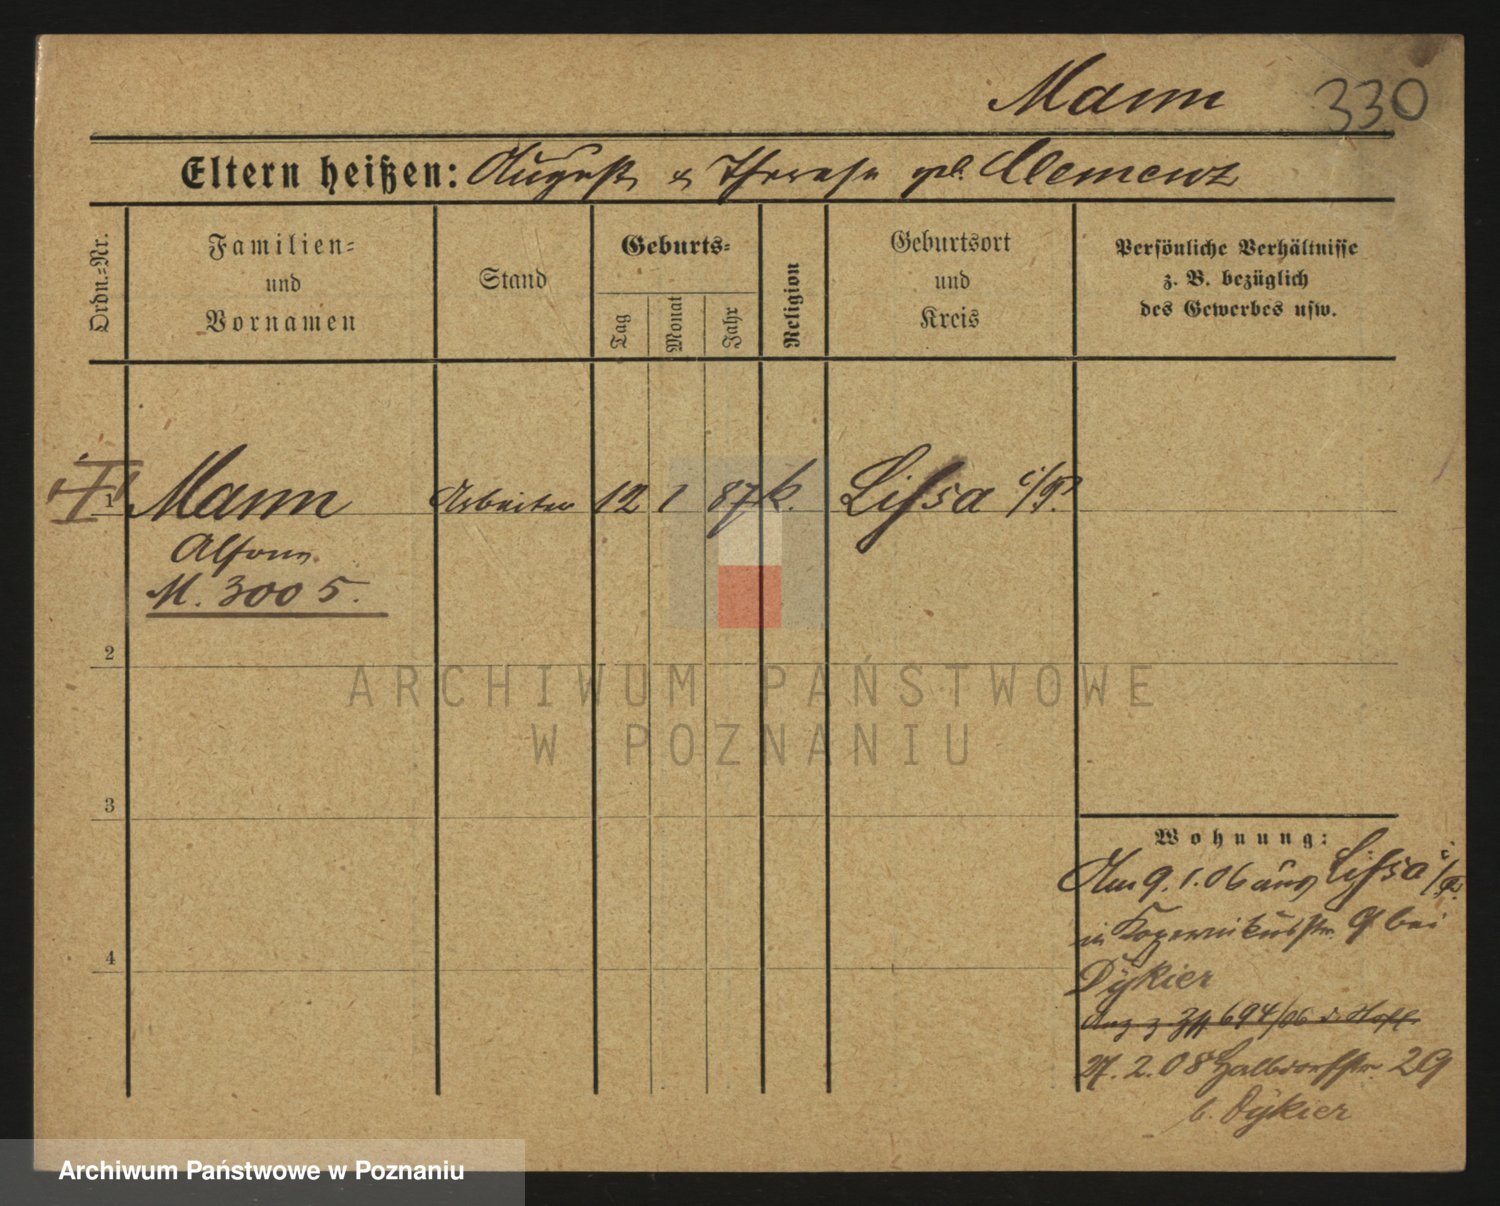 Mann 330
Eltern heißen: August & Therese geb. Clemenz
Ordn.-Nr.
Familien-
und
Vornamen
Stand
Geburts-
Tag
Monat
Jahr
Religion
Geburtsort
und
Kreis
Persönliche Verhältnisse
z. B. bezüglich
des Gewerbes usw.
1 Mann Arbeiter 12 1 87 k. Lissa i/P.
Alfons
M. 3005.
2
3
4
Wohnung:
Am 9.1.06 aus Lissa i/P.
in Kopernikusstr. 9 bei
Dÿkier
694/06
27.2.08 Halbdorfstr. 29
b. Dÿkier
ARCHIWUM PAŃSTWOWE
W POZNANIU
Archiwum Państwowe w Poznaniu